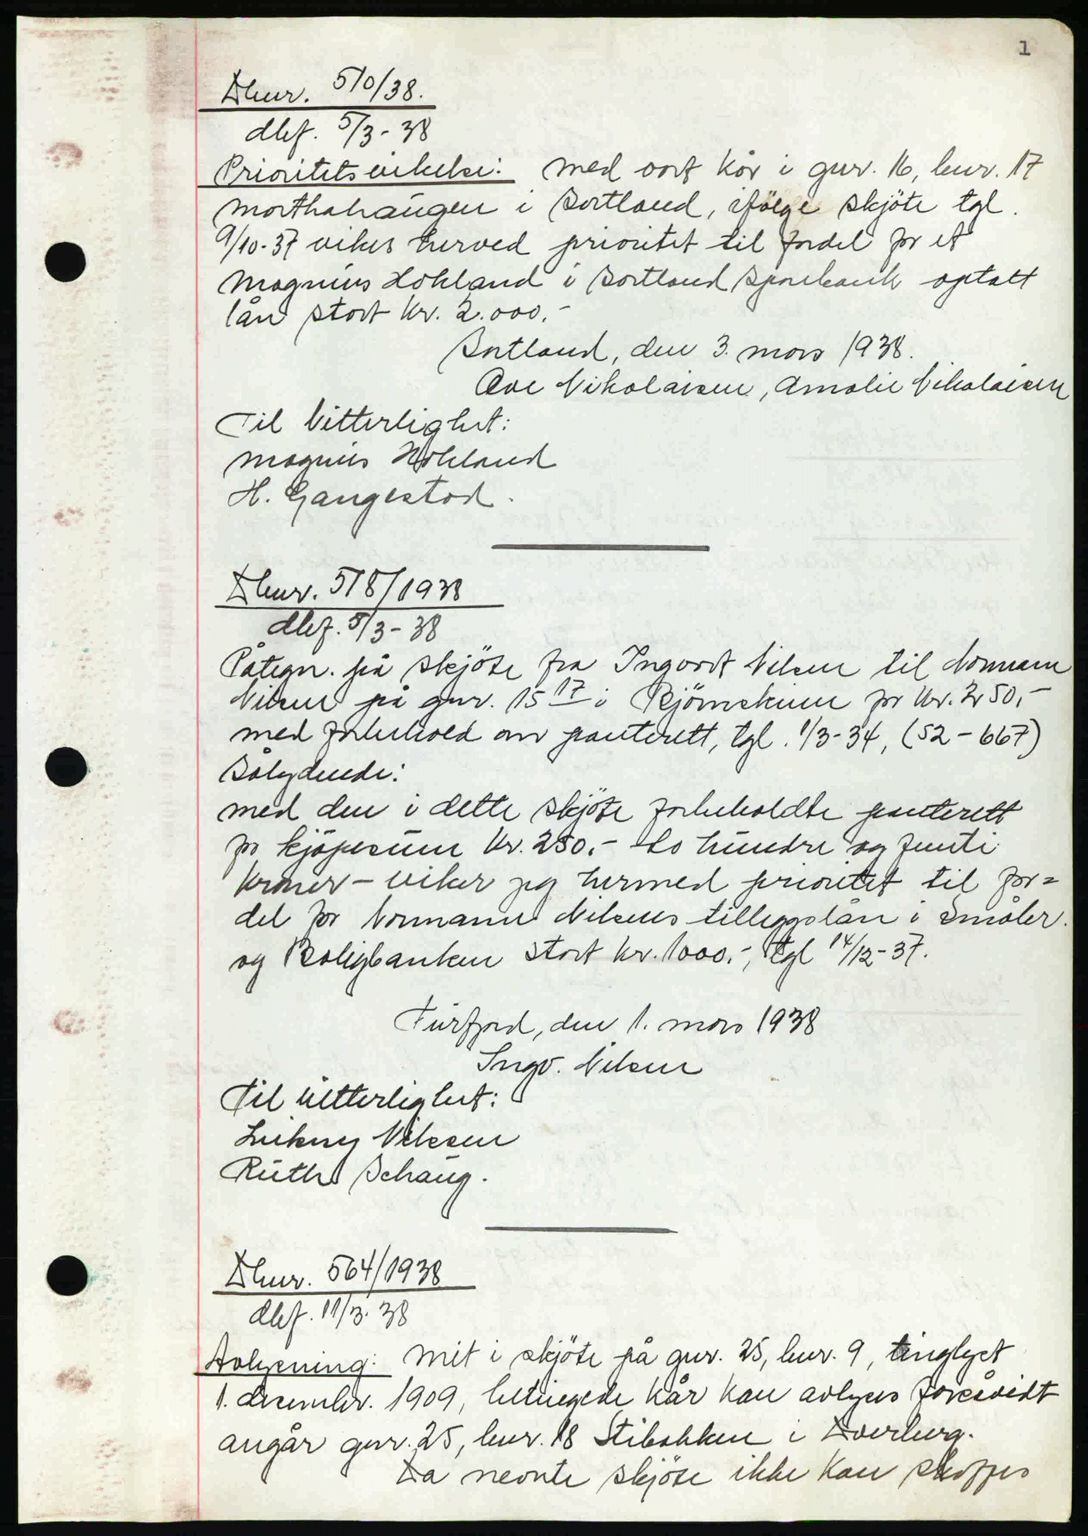 1
Dbnr. 510/38.
dbf. 5/3-38
Prioritetsvikelse: Med vort kår i gnr. 16, bnr. 17
Marthahaugen i Sortland, ifølge skjöte tgl.
9/10-37 vikes herved prioritet til fordel for et
Magnus Hokland i Sortland Sparebank optatt
lån stort kr. 2.000.-
Sortland, den 3. mars 1938.
Ove Nikolaisen, Amalie Nikolaisen
Til Vitterlighet:
Magnus Hokland
H. Gangestad.
Dbnr. 518/1938
dbf. 5/3-38
Påtegn. på skjöte fra Ingvart Nilsen til Normann
Nilsen på gnr. 15 17 i Björnskinn for kr. 250,-
med forbehold om panterett, tgl. 1/3-34, (52-667)
Sålydende:
Med den i dette skjöte forbeholdte panterett
for kjöpesum kr. 250.- to hundre og femti
kroner - viker jeg hermed prioritet til for=
del for Normann Nilsens tilleggslån i Småbr.
og Boligbanken stort kr. 1000.-, tgl 14/12-37.
den 1. mars 1938
Ingv. Nilsen
Til vitterlighet:
Nilssen
Ruth Schaug.
Dbnr. 564/1938
dbf. 11/3-38
Avlysning: Mit i skjöte på gnr. 25, bnr. 9, tinglyst
1. decembr. 1909, betingede kår kan avlyses forsåvidt
angår gnr. 25, bnr. 18 Stibakken i Dverberg.
Da nevnte skjöte ikke kan skaffes